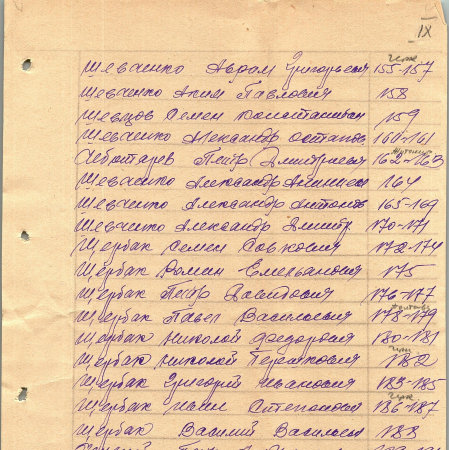 IX
Шевченко Аврам Григорьевич 155-157
Шевченко Аким Павлович 158
Шевцов Семен Константин 159
Шевченко Александр Остапов 160-161
Чеботарев Петр Дмитриевич 162-163
Шевченко Александр 164
Шевченко Александр Антонов 165-169
Шевченко Александр Дмитр 170-171
Щербак Семен Савкович 172-174
Щербак Роман Емельянович 175
Щербак Петр Давидович 176-177
Щербак Павел Васильевич 178-179
Щербак Николай Федорович 180-181
Щербак Николай Терешкович 182
Щербак Григорий Иванович 183-185
Щербак Степанович 186-187
Щербак Василий Васильев 188